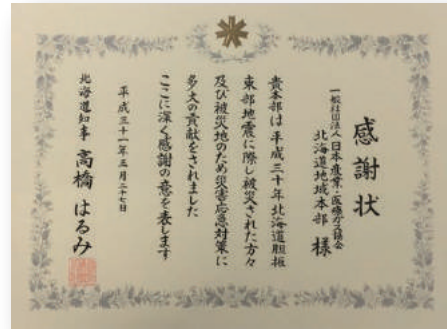 感謝状
一般社団法人日本産業・医療ガス協会
北海道地域本部 様
貴本部は平成三十年北海道胆振
東部地震に際し被災された方々
及び被災地のため災害応急対策に
多大の貢献をされました
ここに深く感謝の意を表します
平成三十一年三月二十七日
北海道知事 高橋はるみ